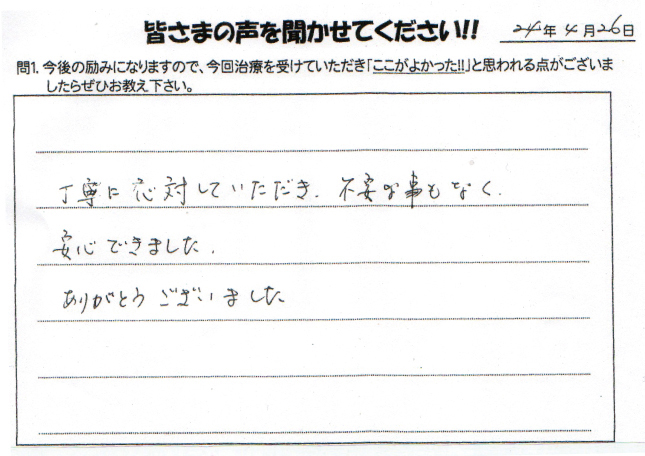 皆さまの声を聞かせてください!! 24年4月26日
問1. 今後の励みになりますので、今回治療を受けていただき「ここがよかった!!」と思われる点がございま
したらぜひお教え下さい。
丁寧に応対していただき、不安な事もなく、
安心できました。
ありがとうございました